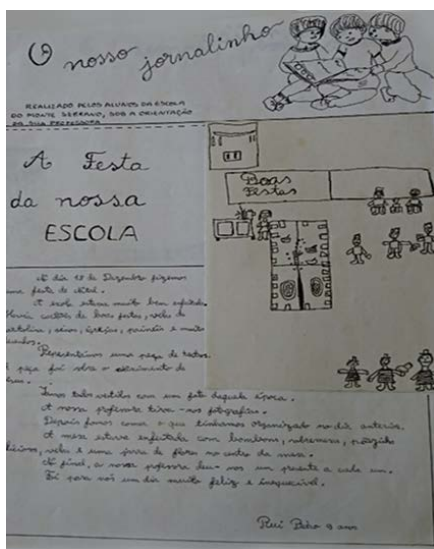 O nosso jornalinho
REALIZADO PELOS ALUNOS DA ESCOLA
DO MONTE SERRANO, SOB A ORIENTAÇÃO
DA SUA PROFESSORA
A Festa
da nossa
ESCOLA
Boas
Festas
A dia 17 de Dezembro fizemos
uma festa de Natal.
A escola estava muito bem enfeitada.
Havia cartões de boas festas, velas de
cartolina, sinos, igrejas, painéis e muitos
Representámos uma peça de teatro.
A peça foi sobre o nascimento de
Fomos todos vestidos com um fato daquela época.
A nossa professora tirou-nos fotografias.
Depois fomos comer o que tínhamos organizado no dia anterior.
A mesa estava enfeitada com bombons,
velas e uma jarra de flores no centro da mesa.
A final, a nossa professora deu-nos um presente a cada um.
Foi para nós um dia muito feliz e inesquecível.
Rui Pedro 9 anos